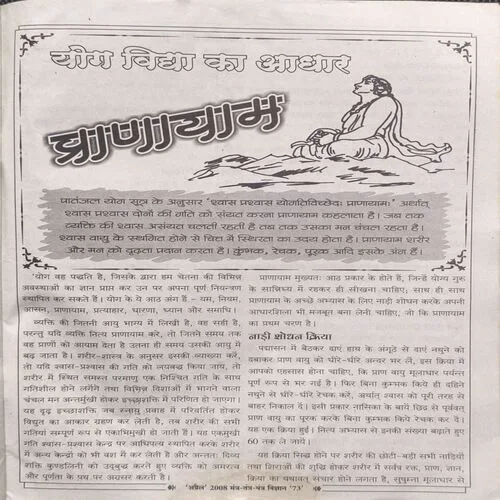 योग विद्या का आधार
प्राणायाम
प्रातंजल योग सूत्र के अनुसार 'श्वास प्रश्वास योगतिविच्छेदः प्राणायामः' अर्थात्
श्वास प्रश्वास दोनों की गति को संयत करना प्राणायाम कहलाता है। जब तक
व्यक्ति की श्वास असंयत चलती रहती है तब तक उसका मन चंचल रहता है।
श्वास वायु के स्थगित होने से चित्त में स्थिरता का उदय होता है। प्राणायाम शरीर
और मन को दृढ़ता प्रदान करता है। कुंभक, रेचक, पूरक आदि इसके अंग हैं।
'योग वह पद्धति है, जिसके द्वारा हम चेतना की विभिन्न
अवस्थाओं का ज्ञान प्राप्त कर उन पर अपना पूर्ण नियन्त्रण
स्थापित कर सकते हैं। योग के ये आठ अंग हैं - यम, नियम,
आसन, प्राणायाम, प्रत्याहार, धारणा, ध्यान और समाधि।
व्यक्ति की जितनी आयु भाग्य में लिखी है, वह सही है,
परन्तु यदि व्यक्ति नित्य प्राणायाम करे, तो जितने समय तक
वह प्राणों को आयाम देता है उतना ही समय उसकी आयु में
बढ़ जाता है। शरीर-शास्त्र के अनुसार इसकी व्याख्या करें,
तो यदि श्वास-प्रश्वास की गति को लयबद्ध किया जाय, तो
शरीर में स्थित समस्त परमाणु एक निश्चित गति के साथ
गतिशील होने लगेंगे तथा विभिन्न दिशाओं में भागने वाला
चंचल मन अन्तर्मुखी होकर इच्छाशक्ति में परिणित हो जाएगा।
यह दृढ़ इच्छाशक्ति जब स्नायु प्रवाह में परिवर्तित होकर
विद्युत का आकार ग्रहण कर लेती है, तब शरीर की सभी
गतियां सम्पूर्ण रूप से एकाभिमुखी हो जाती हैं। यह एकमुखी
गति श्वास-प्रश्वास केन्द्र पर आधिपत्य स्थापित करके शरीर
में अन्य केन्द्रों को भी वश में कर लेती है और अन्ततः दिव्य
शक्ति कुण्डलिनी को उद्बुद्ध करते हुए व्यक्ति को अमरत्व
और पूर्णता के पथ पर अग्रसर करती है।
प्राणायाम मुख्यतः आठ प्रकार के होते हैं, जिन्हें योग्य गुरु
के सान्निध्य में रहकर ही सीखना चाहिए, साथ ही साथ
प्राणायाम के अच्छे अभ्यास के लिए नाड़ी शोधन करके अपनी
आधारशिला भी मजबूत बना लेनी चाहिए, जो कि प्राणायाम
का प्रथम चरण है।
नाड़ी शोधन क्रिया
पद्मासन में बैठकर दाएं हाथ के अंगूठे से दाएं नथुने को
दबाकर प्राण वायु को धीरे-धीरे अन्दर भर लें, इस क्रिया में
आपको एहसास होना चाहिए, कि प्राण वायु मूलाधार पर्यन्त
पूर्ण रूप से भर गई है। फिर बिना कुम्भक किये ही दाहिने
नथुने से धीरे-धीरे रेचक करें, अर्थात् श्वास को पूरी तरह से
बाहर निकाल दें। इसी प्रकार नासिका के बायें छिद्र से पूर्ववत्
प्राण वायु का पूरक करके बिना कुम्भक किये रेचक कर दें।
यह एक क्रिया हुई। नित्य अभ्यास से इनकी संख्या बढ़ाते हुए
60 तक ले जायें।
यह क्रिया सिद्ध होने पर शरीर की छोटी-बड़ी सभी नाड़ियों
तथा शिराओं की शुद्धि होकर शरीर में सर्वत्र रक्त, प्राण, ज्ञान,
क्रिया का यथावत् संचार होने लगता है, सुषुम्ना मूलाधार से
'अप्रैल' 2008 मंत्र-तंत्र-यंत्र विज्ञान '73'